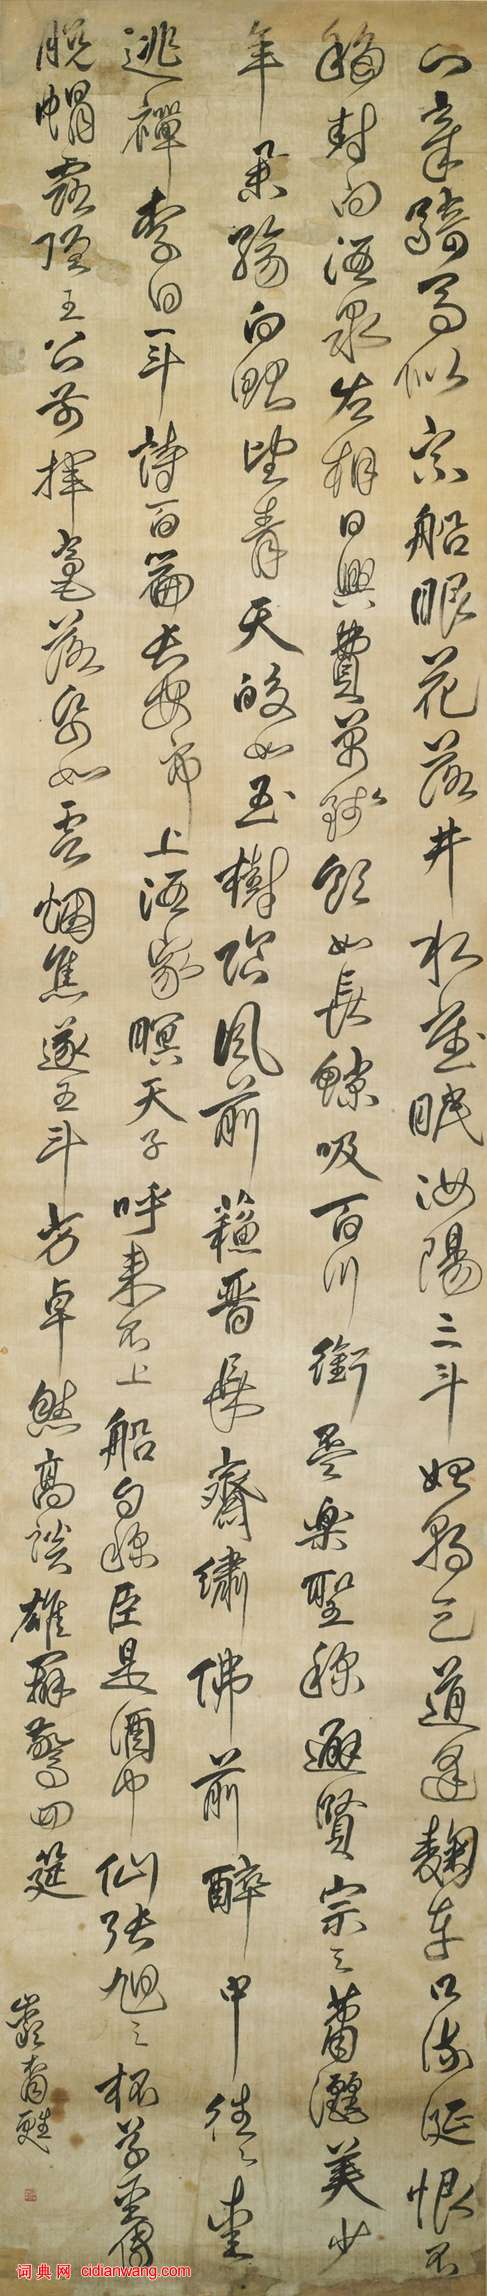 知章騎馬似乘船眼花落井水底眠汝陽三斗始朝天道逢麴車口流涎恨不
移封向酒泉左相日興費萬錢飲如長鯨吸百川銜盃樂聖稱避賢宗之蕭灑美少
年舉觴白眼望青天皎如玉樹臨風前蘇晉長齋繡佛前醉中往々愛
逃禪李白一斗詩百篇長安市上酒家眠天子呼來不上船自稱臣是酒中仙張旭三杯草聖傳
脫帽露頂王公前揮毫落紙如雲烟焦遂五斗方卓然高談雄辯驚四筵
词典网 cidianwang.com